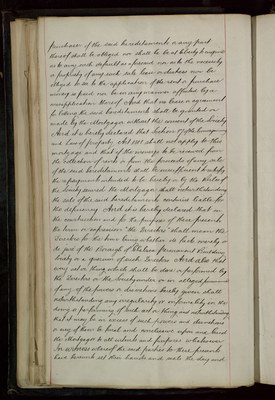 purchaser of the said hereditaments or any part
thereof shall be obliged or shall be at liberty to inquire
as to any such default as aforesaid or as to the necessity
or propriety of any such sale lease or distress nor be
obliged to see to the application of the rent or purchase
money so paid nor be in any manner affected by a
misapplication thereof And that no lease or agreement
for letting the said hereditaments shall be granted or
made by the Mortgagor without the consent of the Society
And it is hereby declared that Section 17 of the Conveyancing
and Law of Property Act 1881 shall not apply to this
mortgage and that if the moneys to be received from
the collection of rents or from the proceeds of any sale
of the said hereditaments shall be insufficient to satisfy
the repayments intended to be hereby or by the Rules of
the Society secured the Mortgagor shall notwithstanding
the sale of the said hereditaments continue liable for
the deficiency And it is hereby declared that in
the construction and for the purpose of these presents
the term or expression "the Directors" shall mean the
Directors for the time being whether at such
as part of the
being or a quorum of such Directors And also that
any act or thing which shall be done or performed by
the Directors or the Society under or in alleged pursuance
of any of the powers or directions hereby given shall
notwithstanding any irregularity or informality in the
doing or performing of such act or thing and notwithstanding
that it may be in excess of such powers and directions
or any of them be final and conclusive upon and bind
the Mortgagor to all intents and purposes whatsoever
In witness whereof the said parties to these presents
have hereunto set their hands and seals the day and